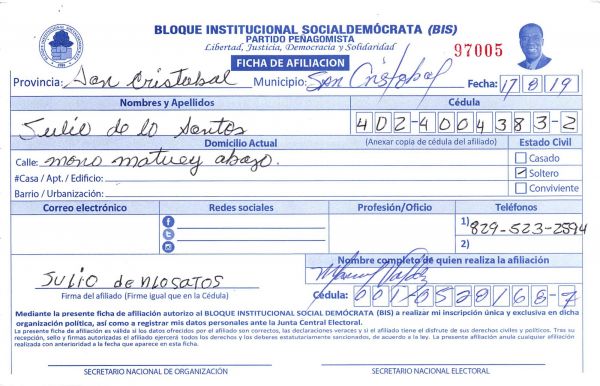 BLOQUE INSTITUCIONAL SOCIALDEMÓCRATA (BIS)
PARTIDO PEÑAGOMISTA
Libertad, Justicia, Democracia y Solidaridad
97005
FICHA DE AFILIACION
Provincia: San Cristobal Municipio: San Cristobal Fecha: 17/8/19
Nombres y Apellidos Cédula
Julio de lo Santos 402-4004383-2
Domicilio Actual (Anexar copia de cédula del afiliado) Estado Civil
Calle: mono matuey abajo. Casado
#Casa / Apt. / Edificio: Soltero
Barrio / Urbanización: Conviviente
Correo electrónico Redes sociales Profesión/Oficio Teléfonos
1) 829-523-2894
2)
Nombre completo de quien realiza la afiliación
Julio de los atos
Firma del afiliado (Firme igual que en la Cédula) Cédula: 001-0520168-7
Mediante la presente ficha de afiliación autorizo al BLOQUE INSTITUCIONAL SOCIAL DEMÓCRATA (BIS) a realizar mi inscripción única y exclusiva en dicha
organización política, así como a registrar mis datos personales ante la Junta Central Electoral.
La presente ficha de afiliación es válida si los datos ofrecidos por el afiliado son correctos, las declaraciones veraces y si el afiliado tiene el disfrute de sus derechos civiles y políticos. Tras su
recepción, sello y firmas autorizadas el afiliado ejercerá todos los derechos y los deberes estatutariamente sancionados, de acuerdo a la ley. La presente afiliación anula cualquier afiliación
realizada con anterioridad a la fecha que aparece en esta ficha.
SECRETARIO NACIONAL DE ORGANIZACIÓN SECRETARIO NACIONAL ELECTORAL